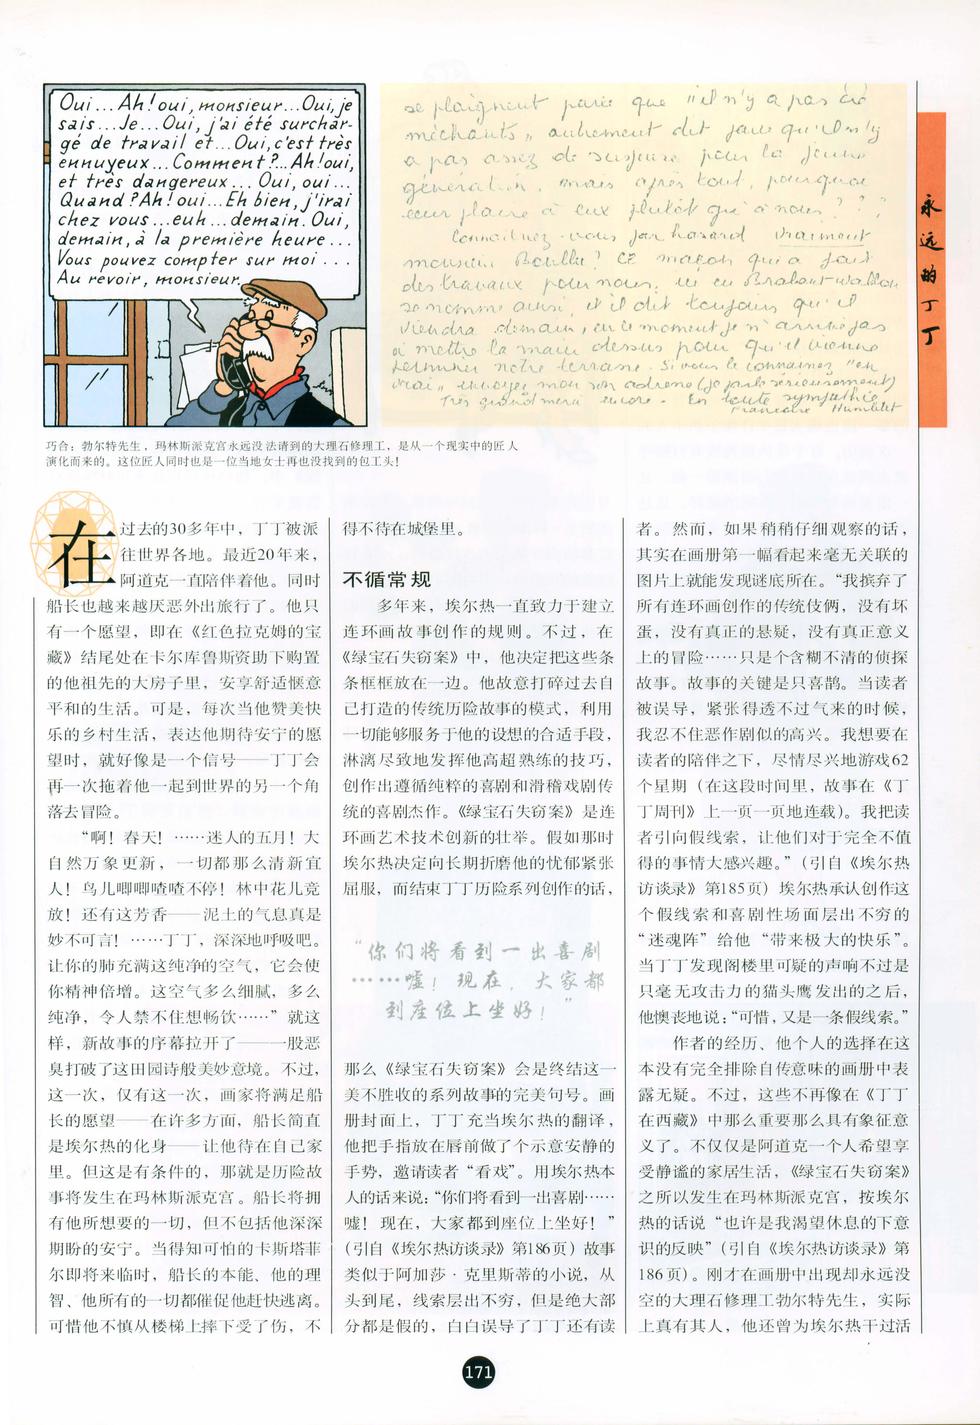 Oui...Ah!oui, monsieur...Oui, je
sais...Je...Oui, j'ai été surchar-
gé de travail et...Oui, c'est très
ennuyeux...Comment?...Ah!oui,
et très dangereux... Oui, oui...
Quand?Ah! oui...Eh bien, j'irai
chez vous...euh...demain. Oui,
demain, à la première heure...
Vous pouvez compter sur moi...
Au revoir, monsieur.
se plaignent parce que "il n'y a pas de
méchants", autrement dit parce qu'il n'y
a pas assez de suspense pour la jeune
génération, mais après tout, pourquoi
leur plaire à eux plutôt qu'à nous???
Connaissez-vous par hasard vraiment
monsieur Boullu? Ce maçon qui a fait
des travaux pour nous, ici en Brabant-wallon
se nomme ainsi, et il dit toujours qu'il
viendra demain, en ce moment je n'arrive pas
à mettre la main dessus pour qu'il vienne
terminer notre terrasse. Si vous le connaissez "en
vrai", envoyez moi son adresse (je parle sérieusement)
Très grand merci encore. En toute sympathie
Françoise Humblet
永远的丁丁
巧合：勃尔特先生，玛林斯派克宫永远没法请到的大理石修理工，是从一个现实中的匠人
演化而来的。这位匠人同时也是一位当地女士再也没找到的包工头！
在过去的30多年中，丁丁被派
往世界各地。最近20年来，
阿道克一直陪伴着他。同时
船长也越来越厌恶外出旅行了。他只
有一个愿望，即在《红色拉克姆的宝
藏》结尾处在卡尔库鲁斯资助下购置
的他祖先的大房子里，安享舒适惬意
平和的生活。可是，每次当他赞美快
乐的乡村生活，表达他期待安宁的愿
望时，就好像是一个信号——丁丁会
再一次拖着他一起到世界的另一个角
落去冒险。
“啊！春天！……迷人的五月！大
自然万象更新，一切都那么清新宜
人！鸟儿唧唧喳喳不停！林中花儿竞
放！还有这芳香——泥土的气息真是
妙不可言！……丁丁，深深地呼吸吧。
让你的肺充满这纯净的空气，它会使
你精神倍增。这空气多么细腻，多么
纯净，令人禁不住想畅饮……”就这
样，新故事的序幕拉开了——一股恶
臭打破了这田园诗般美妙意境。不过，
这一次，仅有这一次，画家将满足船
长的愿望——在许多方面，船长简直
是埃尔热的化身——让他待在自己家
里。但这是有条件的，那就是历险故
事将发生在玛林斯派克宫。船长将拥
有他所想要的一切，但不包括他深深
期盼的安宁。当得知可怕的卡斯塔菲
尔即将来临时，船长的本能、他的理
智、他所有的一切都催促他赶快逃离。
可惜他不慎从楼梯上摔下受了伤，不
得不待在城堡里。
不循常规
多年来，埃尔热一直致力于建立
连环画故事创作的规则。不过，在
《绿宝石失窃案》中，他决定把这些条
条框框放在一边。他故意打碎过去自
己打造的传统历险故事的模式，利用
一切能够服务于他的设想的合适手段，
淋漓尽致地发挥他高超熟练的技巧，
创作出遵循纯粹的喜剧和滑稽戏剧传
统的喜剧杰作。《绿宝石失窃案》是连
环画艺术技术创新的壮举。假如那时
埃尔热决定向长期折磨他的忧郁紧张
屈服，而结束丁丁历险系列创作的话，
“你们将看到一出喜剧
……嘘！现在，大家都
到座位上坐好！”
那么《绿宝石失窃案》会是终结这一
美不胜收的系列故事的完美句号。画
册封面上，丁丁充当埃尔热的翻译，
他把手指放在唇前做了个示意安静的
手势，邀请读者“看戏”。用埃尔热本
人的话来说：“你们将看到一出喜剧……
嘘！现在，大家都到座位上坐好！”
（引自《埃尔热访谈录》第186页）故事
类似于阿加莎·克里斯蒂的小说，从
头到尾，线索层出不穷，但是绝大部
分都是假的，白白误导了丁丁还有读
者。然而，如果稍稍仔细观察的话，
其实在画册第一幅看起来毫无关联的
图片上就能发现谜底所在。“我摈弃了
所有连环画创作的传统伎俩，没有坏
蛋，没有真正的悬疑，没有真正意义
上的冒险……只是个含糊不清的侦探
故事。故事的关键是只喜鹊。当读者
被误导，紧张得透不过气来的时候，
我忍不住恶作剧似的高兴。我想要在
读者的陪伴之下，尽情尽兴地游戏62
个星期（在这段时间里，故事在《丁
丁周刊》上一页一页地连载）。我把读
者引向假线索，让他们对于完全不值
得的事情大感兴趣。”（引自《埃尔热
访谈录》第185页）埃尔热承认创作这
个假线索和喜剧性场面层出不穷的
“迷魂阵”给他“带来极大的快乐”。
当丁丁发现阁楼里可疑的声响不过是
只毫无攻击力的猫头鹰发出的之后，
他懊丧地说：“可惜，又是一条假线索。”
作者的经历、他个人的选择在这
本没有完全排除自传意味的画册中表
露无疑。不过，这些不再像在《丁丁
在西藏》中那么重要那么具有象征意
义了。不仅仅是阿道克一个人希望享
受静谧的家居生活，《绿宝石失窃案》
之所以发生在玛林斯派克宫，按埃尔
热的话说“也许是我渴望休息的下意
识的反映”（引自《埃尔热访谈录》第
186页）。刚才在画册中出现却永远没
空的大理石修理工勃尔特先生，实际
上真有其人，他还曾为埃尔热干过活
171